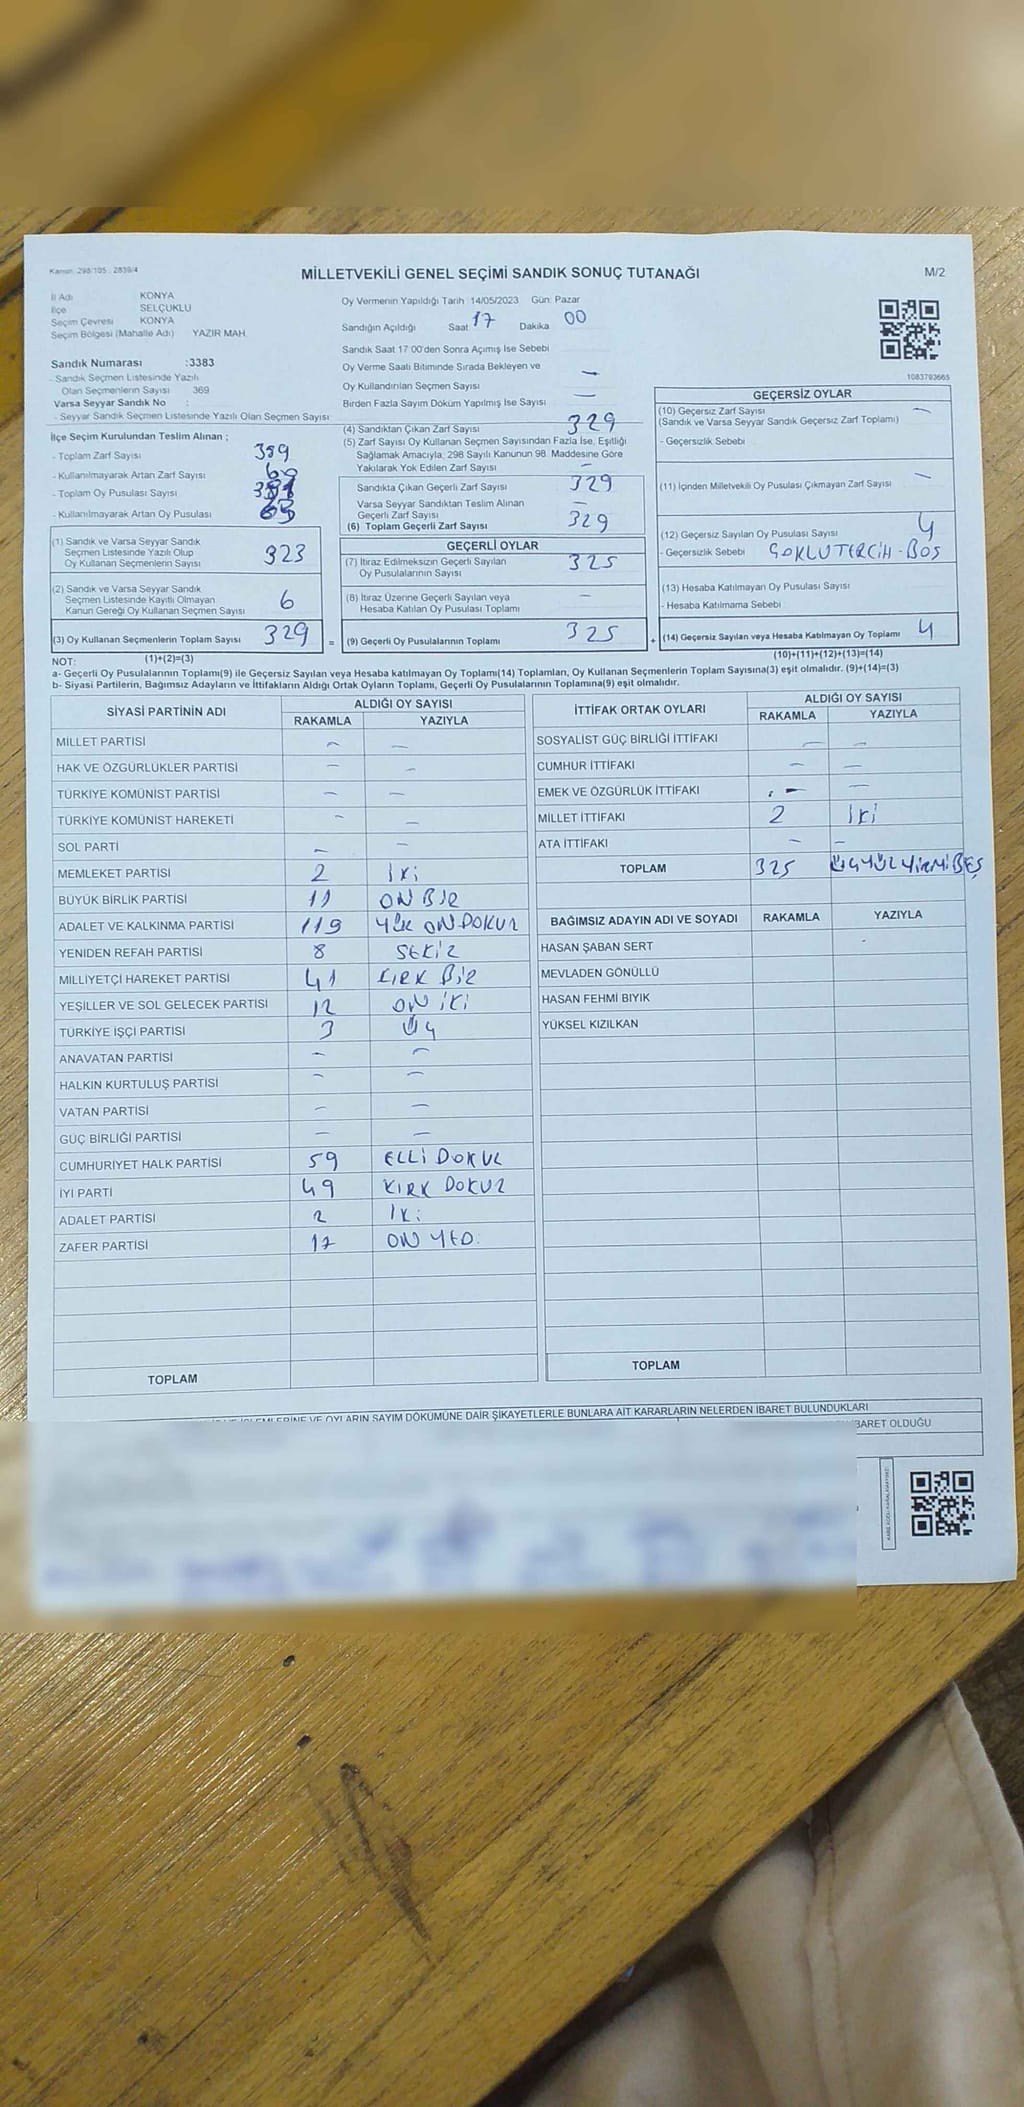 Kanun: 298/105 , 2839/4
MİLLETVEKİLİ GENEL SEÇİMİ SANDIK SONUÇ TUTANAĞI
M/2
İl Adı KONYA
İlçe SELÇUKLU
Seçim Çevresi KONYA
Seçim Bölgesi (Mahalle Adı) YAZIR MAH.
Oy Vermenin Yapıldığı Tarih 14/05/2023 Gün: Pazar
Sandığın Açıldığı Saat 17 Dakika 00
Sandık Saat 17:00'den Sonra Açımış İse Sebebi
Oy Verme Saati Bitiminde Sırada Bekleyen ve
Oy Kullandırılan Seçmen Sayısı —
Birden Fazla Sayım Döküm Yapılmış İse Sayısı —
1083793665
Sandık Numarası :3383
- Sandık Seçmen Listesinde Yazılı
Olan Seçmenlerin Sayısı 369
Varsa Seyyar Sandık No :
- Seyyar Sandık Seçmen Listesinde Yazılı Olan Seçmen Sayısı:
İlçe Seçim Kurulundan Teslim Alınan ;
- Toplam Zarf Sayısı 389
- Kullanılmayarak Artan Zarf Sayısı
- Toplam Oy Pusulası Sayısı
- Kullanılmayarak Artan Oy Pusulası
(1) Sandık ve Varsa Seyyar Sandık
Seçmen Listesinde Yazılı Olup
Oy Kullanan Seçmenlerin Sayısı 323
(2) Sandık ve Varsa Seyyar Sandık
Seçmen Listesinde Kayıtlı Olmayan
Kanun Gereği Oy Kullanan Seçmen Sayısı 6
(3) Oy Kullanan Seçmenlerin Toplam Sayısı 329
(4) Sandıktan Çıkan Zarf Sayısı 329
(5) Zarf Sayısı Oy Kullanan Seçmen Sayısından Fazla İse, Eşitliği
Sağlamak Amacıyla, 298 Sayılı Kanunun 98. Maddesine Göre
Yakılarak Yok Edilen Zarf Sayısı —
Sandıkta Çıkan Geçerli Zarf Sayısı 329
Varsa Seyyar Sandıktan Teslim Alınan
Geçerli Zarf Sayısı —
(6) Toplam Geçerli Zarf Sayısı 329
GEÇERLİ OYLAR
(7) İtiraz Edilmeksizin Geçerli Sayılan
Oy Pusulalarının Sayısı 325
(8) İtiraz Üzerine Geçerli Sayılan veya
Hesaba Katılan Oy Pusulası Toplamı —
= (9) Geçerli Oy Pusulalarının Toplamı 325
GEÇERSİZ OYLAR
(10) Geçersiz Zarf Sayısı —
(Sandık ve Varsa Seyyar Sandık Geçersiz Zarf Toplamı)
- Geçersizlik Sebebi
(11) İçinden Milletvekili Oy Pusulası Çıkmayan Zarf Sayısı —
(12) Geçersiz Sayılan Oy Pusulası Sayısı 4
- Geçersizlik Sebebi ÇOKLU TERCİH - BOŞ
(13) Hesaba Katılmayan Oy Pusulası Sayısı
- Hesaba Katılmama Sebebi
+ (14) Geçersiz Sayılan veya Hesaba Katılmayan Oy Toplamı 4
NOT: (1)+(2)=(3)
(10)+(11)+(12)+(13)=(14)
a- Geçerli Oy Pusulalarının Toplamı(9) ile Geçersiz Sayılan veya Hesaba katılmayan Oy Toplamı(14) Toplamları, Oy Kullanan Seçmenlerin Toplam Sayısına(3) eşit olmalıdır. (9)+(14)=(3)
b- Siyasi Partilerin, Bağımsız Adayların ve İttifakların Aldığı Ortak Oyların Toplamı, Geçerli Oy Pusulalarının Toplamına(9) eşit olmalıdır.
SİYASİ PARTİNİN ADI
ALDIĞI OY SAYISI
RAKAMLA YAZIYLA
MİLLET PARTİSİ — —
HAK VE ÖZGÜRLÜKLER PARTİSİ — —
TÜRKİYE KOMÜNİST PARTİSİ — —
TÜRKİYE KOMÜNİST HAREKETİ — —
SOL PARTİ — —
MEMLEKET PARTİSİ 2 İKİ
BÜYÜK BİRLİK PARTİSİ 11 ON BİR
ADALET VE KALKINMA PARTİSİ 119 YÜZ ON DOKUZ
YENİDEN REFAH PARTİSİ 8 SEKİZ
MİLLİYETÇİ HAREKET PARTİSİ 41 KIRK BİR
YEŞİLLER VE SOL GELECEK PARTİSİ 12 ON İKİ
TÜRKİYE İŞÇİ PARTİSİ 3 ÜÇ
ANAVATAN PARTİSİ — —
HALKIN KURTULUŞ PARTİSİ — —
VATAN PARTİSİ — —
GÜÇ BİRLİĞİ PARTİSİ — —
CUMHURİYET HALK PARTİSİ 59 ELLİ DOKUZ
İYİ PARTİ 49 KIRK DOKUZ
ADALET PARTİSİ 2 İKİ
ZAFER PARTİSİ 17 ON YEDİ
TOPLAM
İTTİFAK ORTAK OYLARI
ALDIĞI OY SAYISI
RAKAMLA YAZIYLA
SOSYALİST GÜÇ BİRLİĞİ İTTİFAKI — —
CUMHUR İTTİFAKI — —
EMEK VE ÖZGÜRLÜK İTTİFAKI — —
MİLLET İTTİFAKI 2 İKİ
ATA İTTİFAKI — —
TOPLAM 325 ÜÇYÜZYİRMİBEŞ
BAĞIMSIZ ADAYIN ADI VE SOYADI RAKAMLA YAZIYLA
HASAN ŞABAN SERT
MEVLADEN GÖNÜLLÜ
HASAN FEHMİ BIYIK
YÜKSEL KIZILKAN
TOPLAM
VE OYLARIN SAYIM DÖKÜMÜNE DAİR ŞİKAYETLERLE BUNLARA AİT KARARLARIN NELERDEN İBARET BULUNDUKLARI
İBARET OLDUĞU